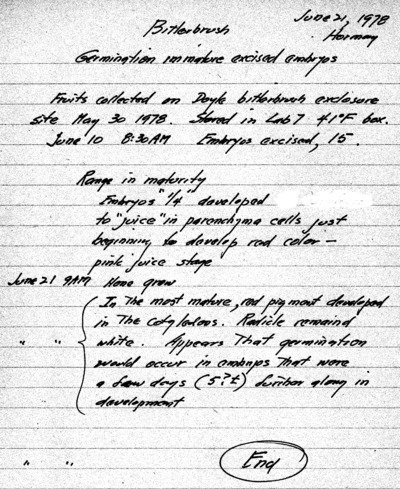 June 21, 1978
Bitterbrush
Hormay
Germination immature excised embryos
Fruits collected on Doyle bitterbrush exclosure
site May 30 1978. Stored in Lab 7 41°F box.
June 10 8:30AM Embryos excised, 15.
Range in maturity
Embryos "1/4" developed
to "juice" in parenchyma cells just
beginning to develop red color –
pink juice stage
June 21 9AM None grew
In the most mature, red pigment developed
in the Cotyledons. Radicle remained
" " white. Appears that germination
would occur in embryos that were
a few days (5?±) further along in
development
" " End